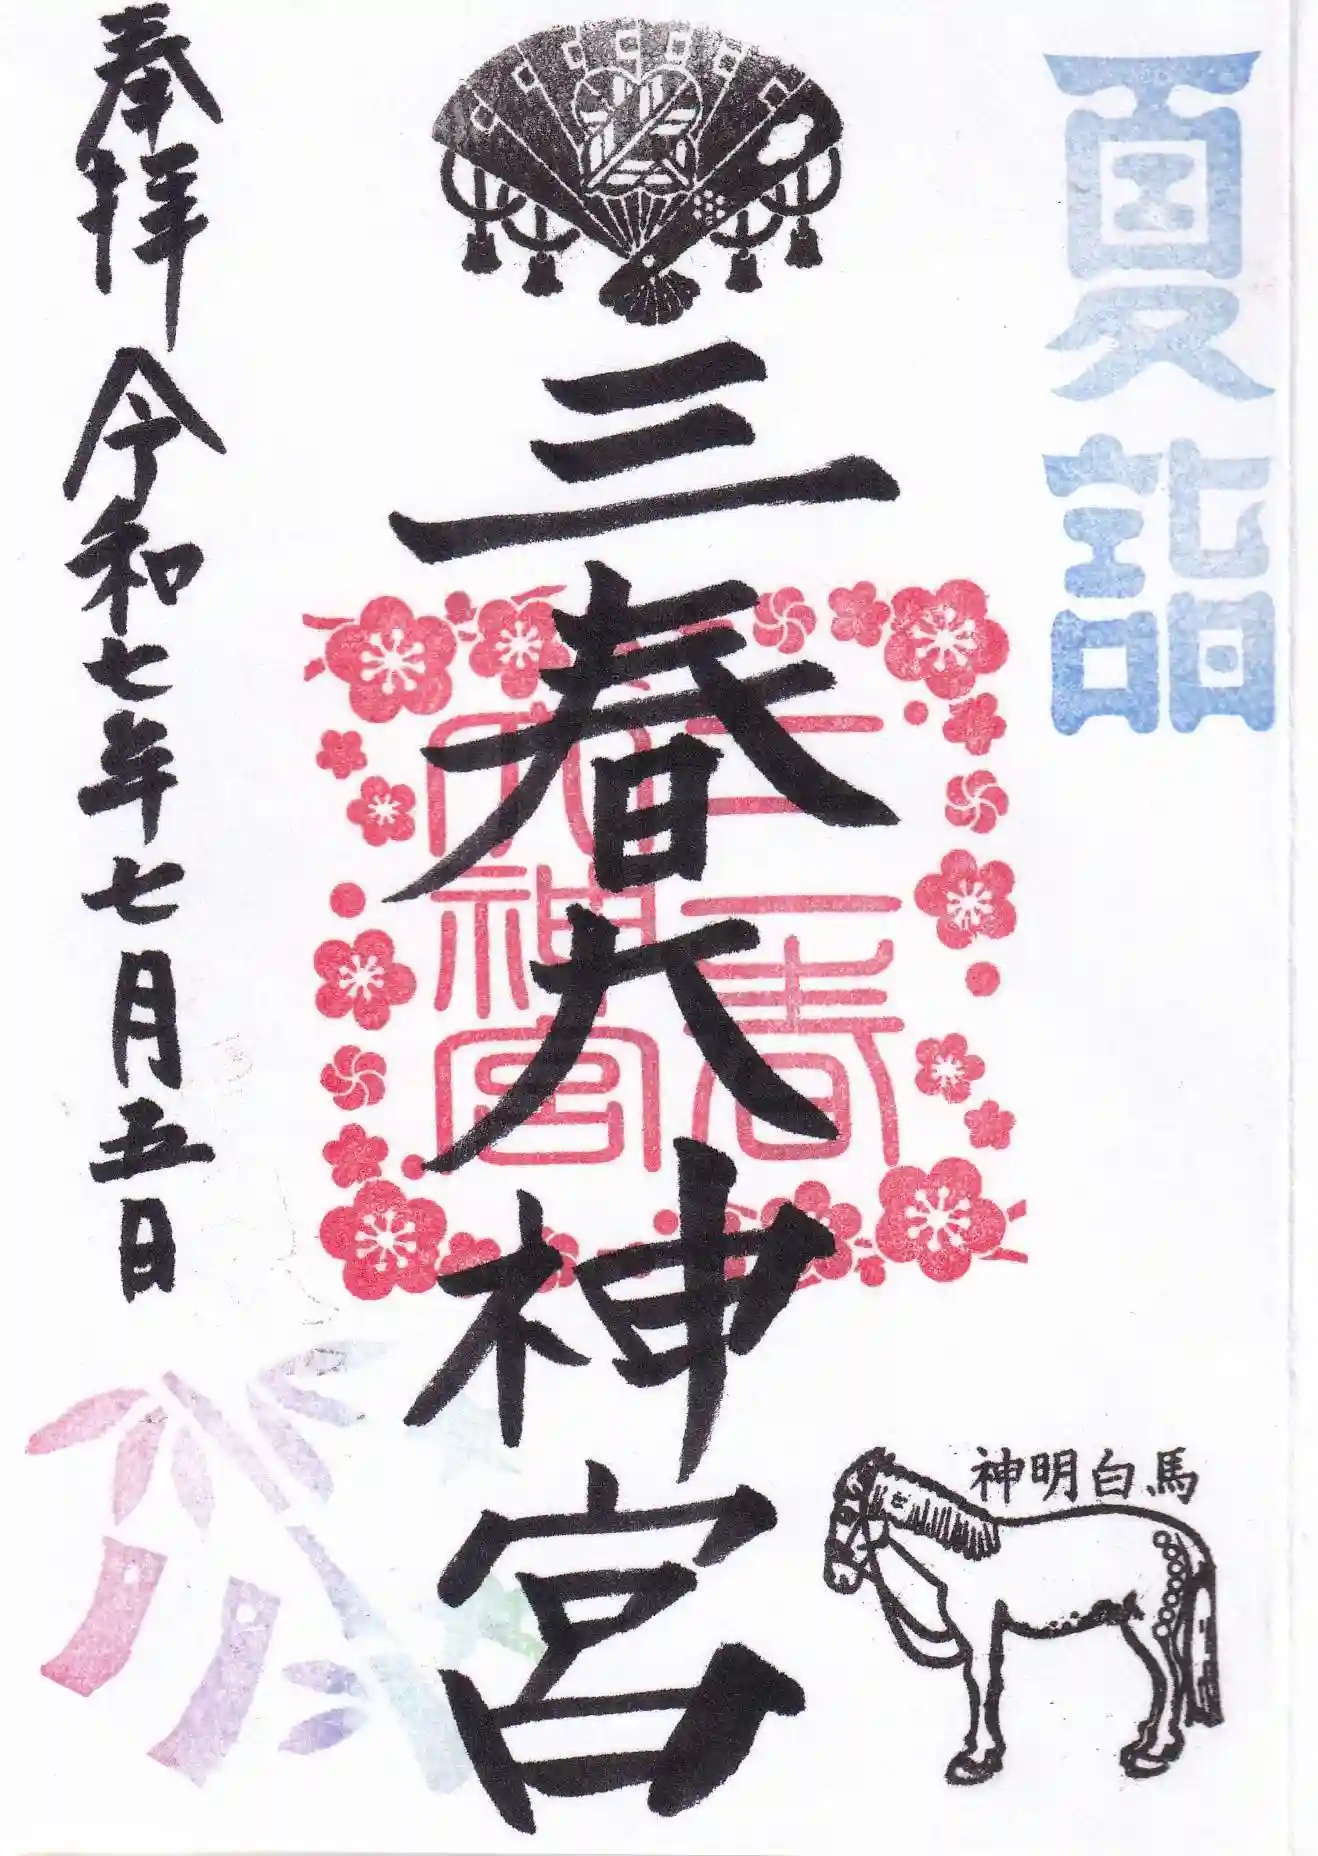 夏詣
三春大神宮
三春
大神宮
神明白馬
奉拝 令和七年七月五日